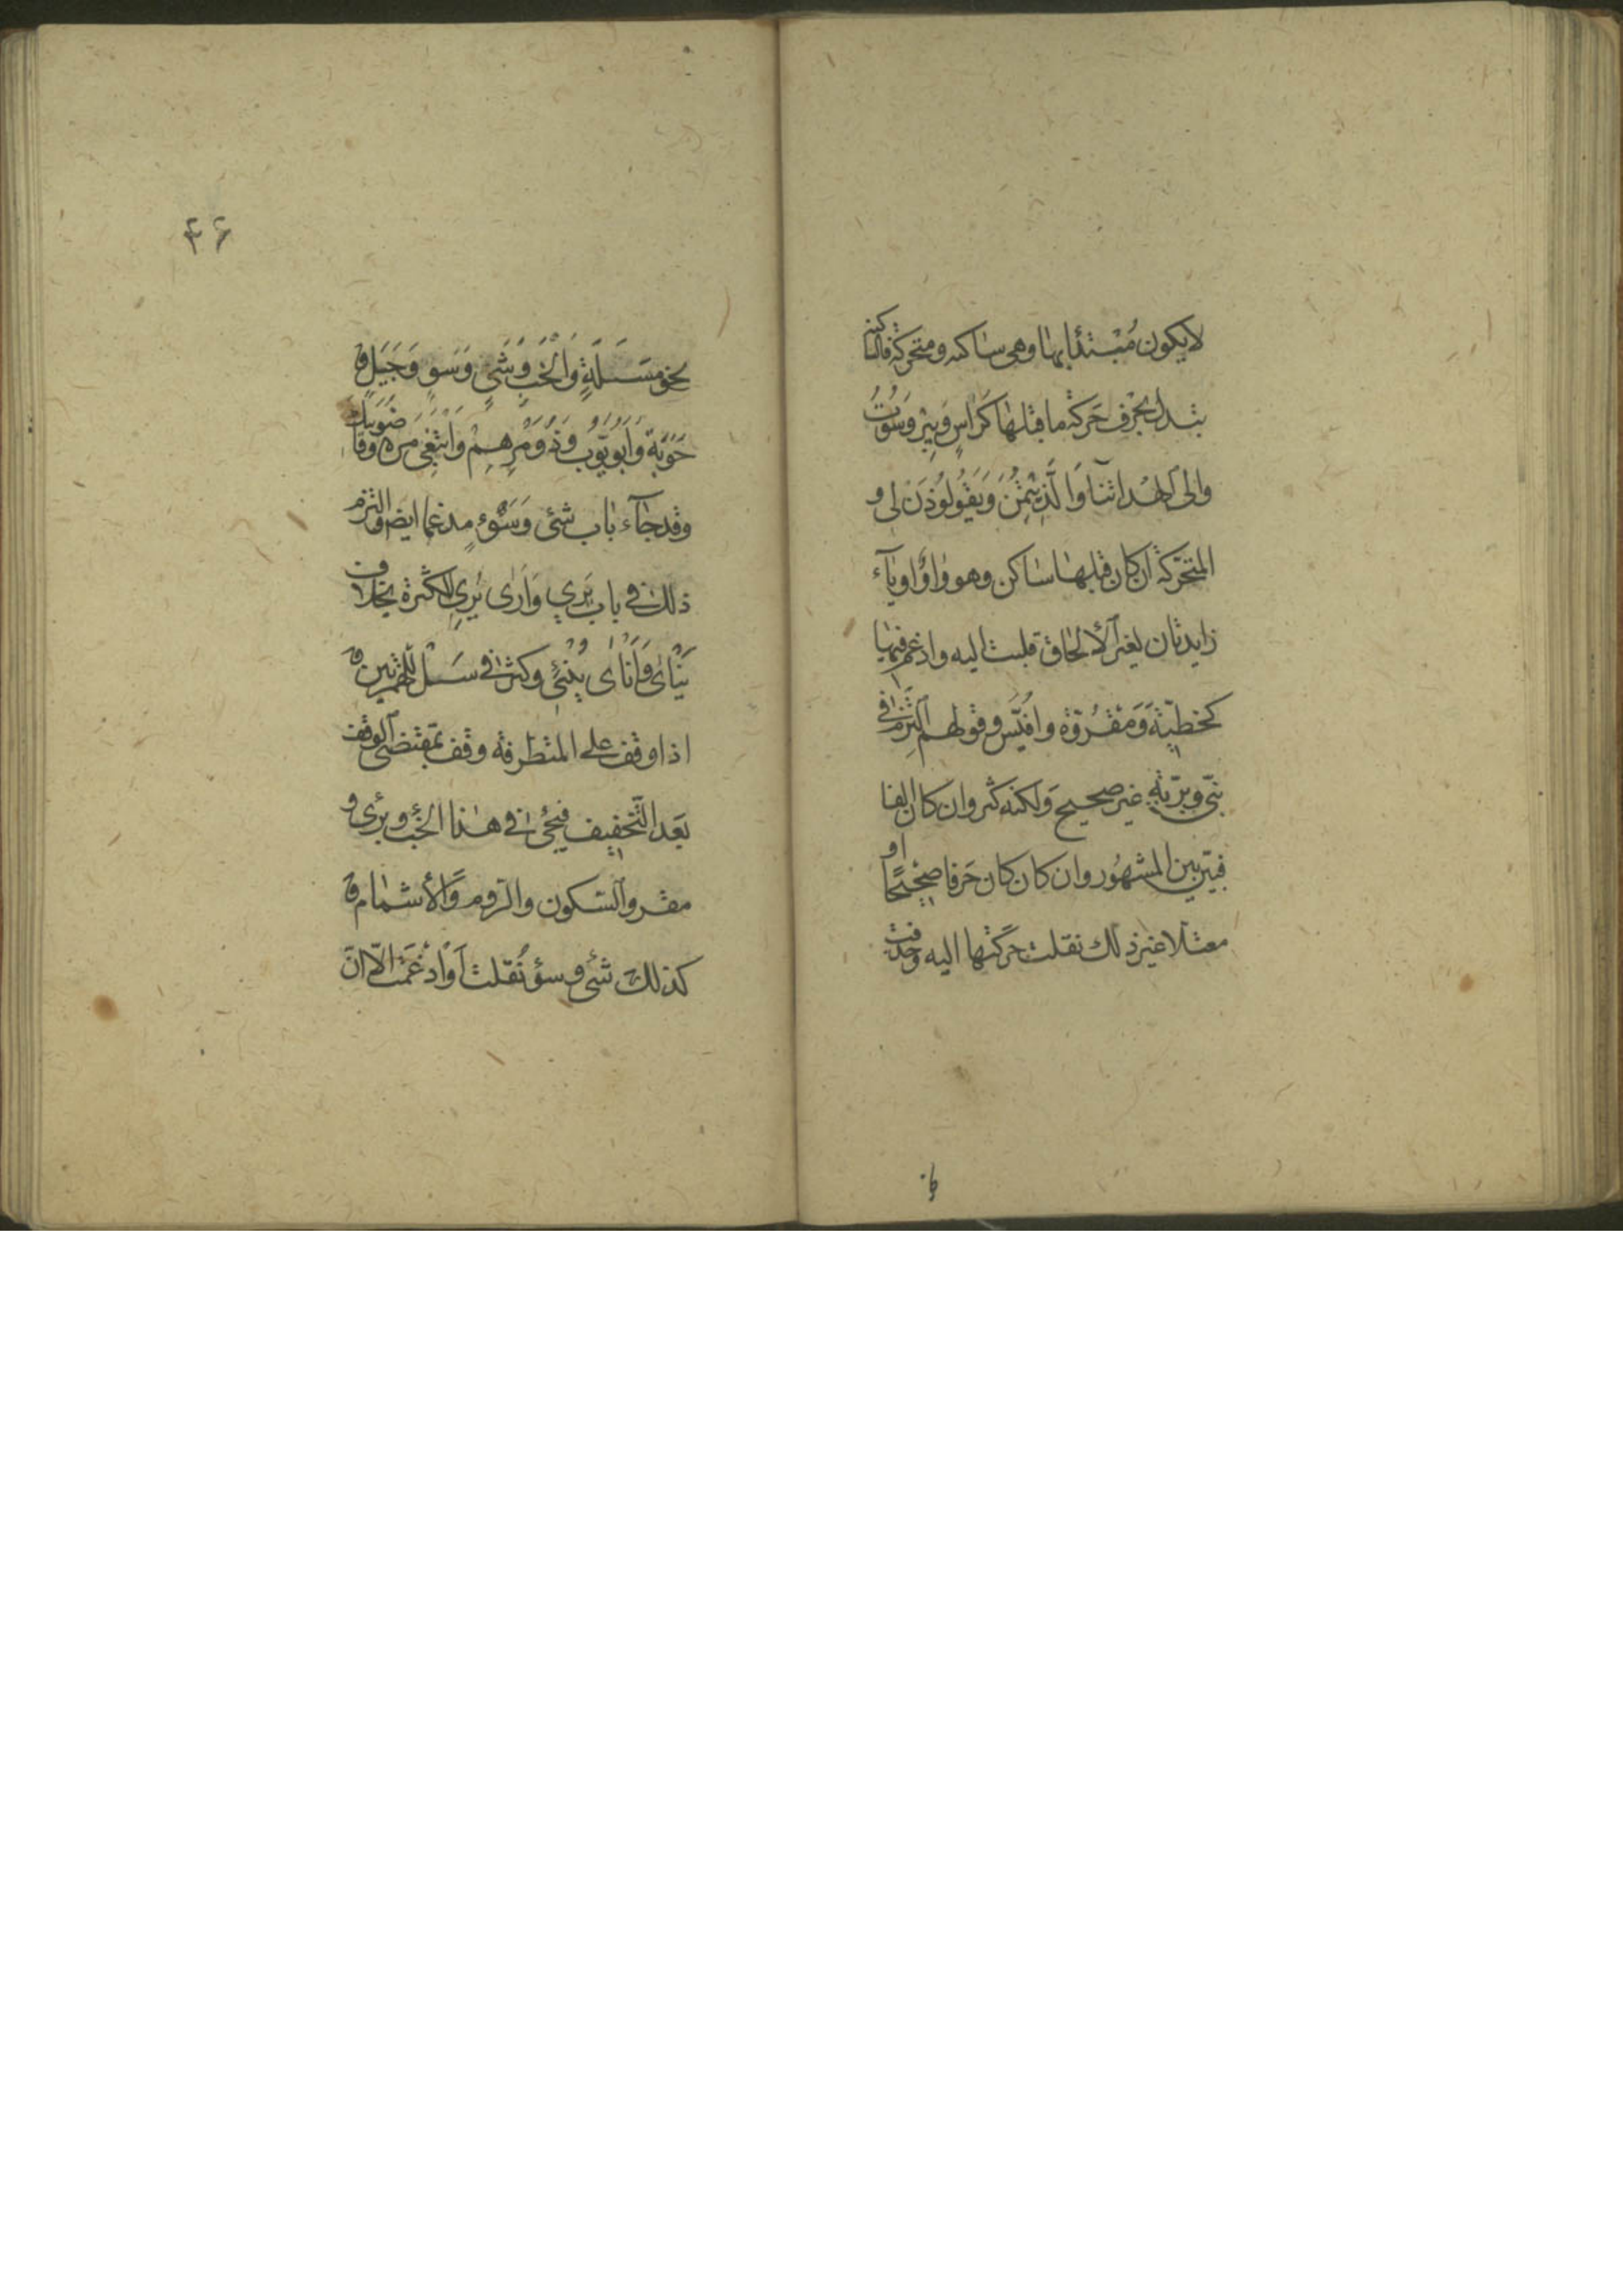 لا يكون مُبْتدأ بها وهى ساكنه ومتحركة فالساكنه
تبدل بحرف حَركة ما قبلها كَرَاسٍ وَبِيْرٍ وَسُوْتُ
والى الهُدَاتنا وَالَّذِيتُمِنَ وَيَقُولُوذَنْ لى و
المتحرّكة ان كان قبلها ساكن وهو وَاوٌ او يَآء
زايدتان لغير الألحاق قلبت اليه وادغم فيها
كخطيّة وَمَقْرُوّة وافُيّس وقولهم التزم فى
نبىّ وبريّةٍ غير صحيح وَلكنه كثر وان كان الفا
فبيْن بين المشهُور وان كان كان حَرفا صحيْحًا او
معتلا غير ذلك نقلت حركتها اليه وحذفت
نحو مَسَلَةٍ وَالْخَبِ وَشَىٍ وَسَوٍ وَجَيَلٍ و
حَوَبَة وَابُوَيّوبَ وَذُوَمْرِهِمْ وَابْتَغِىَ مْرَه وقاضُوَبِيك
وقد جآء باب شئ وَسَوْءٍ مدغما ايضا والتزم
ذلك فى باب يَرَى وَاَرَى يُرِى للكثرة بخلاف
يَنْأى وَاَنْأى يُنْئى وكثر فى سَلْ للهمزتين و
اذا وقف على المتطرفة وقف بمقتضى الوقف
بَعَد التّخفيف فيجئ فى هذا الخَبْ وبرى و
مقرو السّكون والرّوم وَالأشمام و
كذلك شئ وسؤ نُقلت اَوْ اُدْغِمَت الاّ انّ